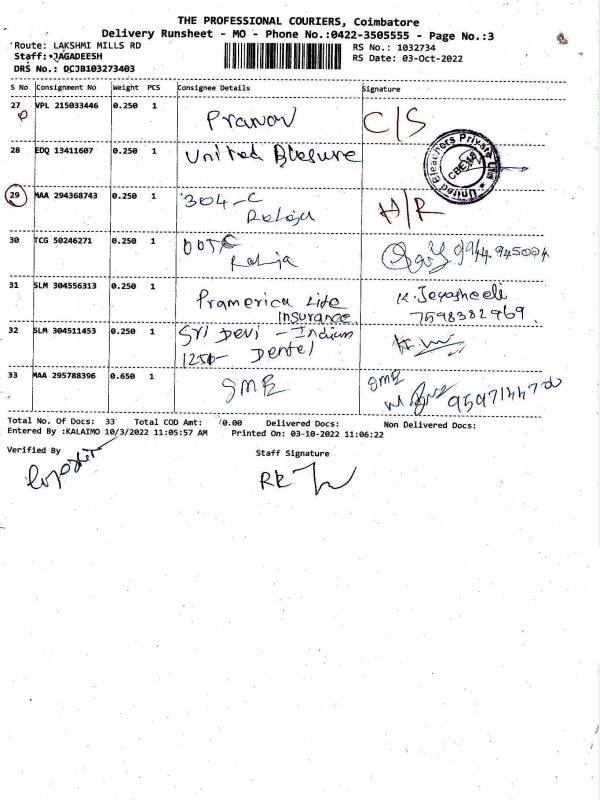 THE PROFESSIONAL COURIERS, Coimbatore
Delivery Runsheet - MO - Phone No.:0422-3505555 - Page No.:3
Route: LAKSHMI MILLS RD
RS No.: 1032734
Staff: JAGADEESH
RS Date: 03-Oct-2022
DRS No.: DCJB103273403
S No Consignment No Weight PCS Consignee Details Signature
27 VPL 215033446 0.250 1 Pranav C/S
28 EDQ 13411607 0.250 1 United
United Bleachers Private Ltd
CBE
29 MAA 294368743 0.250 1 304-C H/R
30 TCG 50246271 0.250 1
31 SLM 304556313 0.250 1 Pramerica Life K. Jegasheeli
Insurance 7598382969.
32 SLM 304511453 0.250 1 Sri Devi - Indium
1250- Dentel
33 MAA 295788396 0.650 1 SME SME
Total No. Of Docs: 33 Total COD Amt: 0.00 Delivered Docs: Non Delivered Docs:
Entered By :KALAIMO 10/3/2022 11:05:57 AM Printed On: 03-10-2022 11:06:22
Verified By Staff Signature
RK